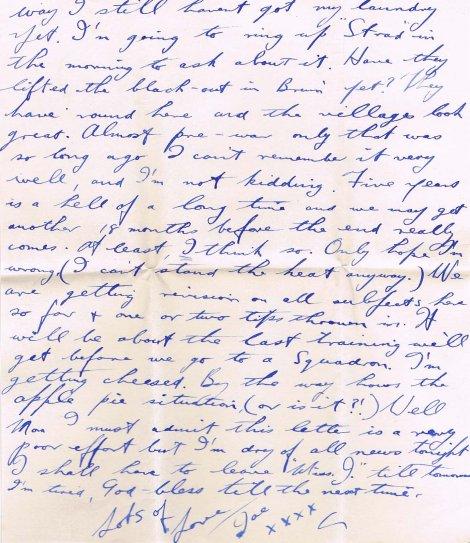 way I still haven't got my laundry
yet. I'm going to ring up "Strad" in
the morning to ask about it. Have they
lifted the black-out in Brum yet? They
have round here and the villages look
great. Almost pre-war only that was
so long ago I can't remember it very
well, and I'm not kidding. Five years
is a hell of a long time and we may get
another 18 months before the end really
comes. At least I think so. Only hope I'm
wrong. (I can't stand the heat anyway.) We
are getting revision on all subjects here
so far & one or two tips thrown in. It
will be about the last training we'll
get before we go to a Squadron. I'm
getting cheesed. By the way hows the
apple pie situation, (or is it?!) Well
Mon I must admit this letter is a very
poor effort but I'm dry of all news tonight
I shall have to leave "Miss. J." till tomorrow
I'm tired, God-bless till the next time.
Lots of Love / Joe xxxx